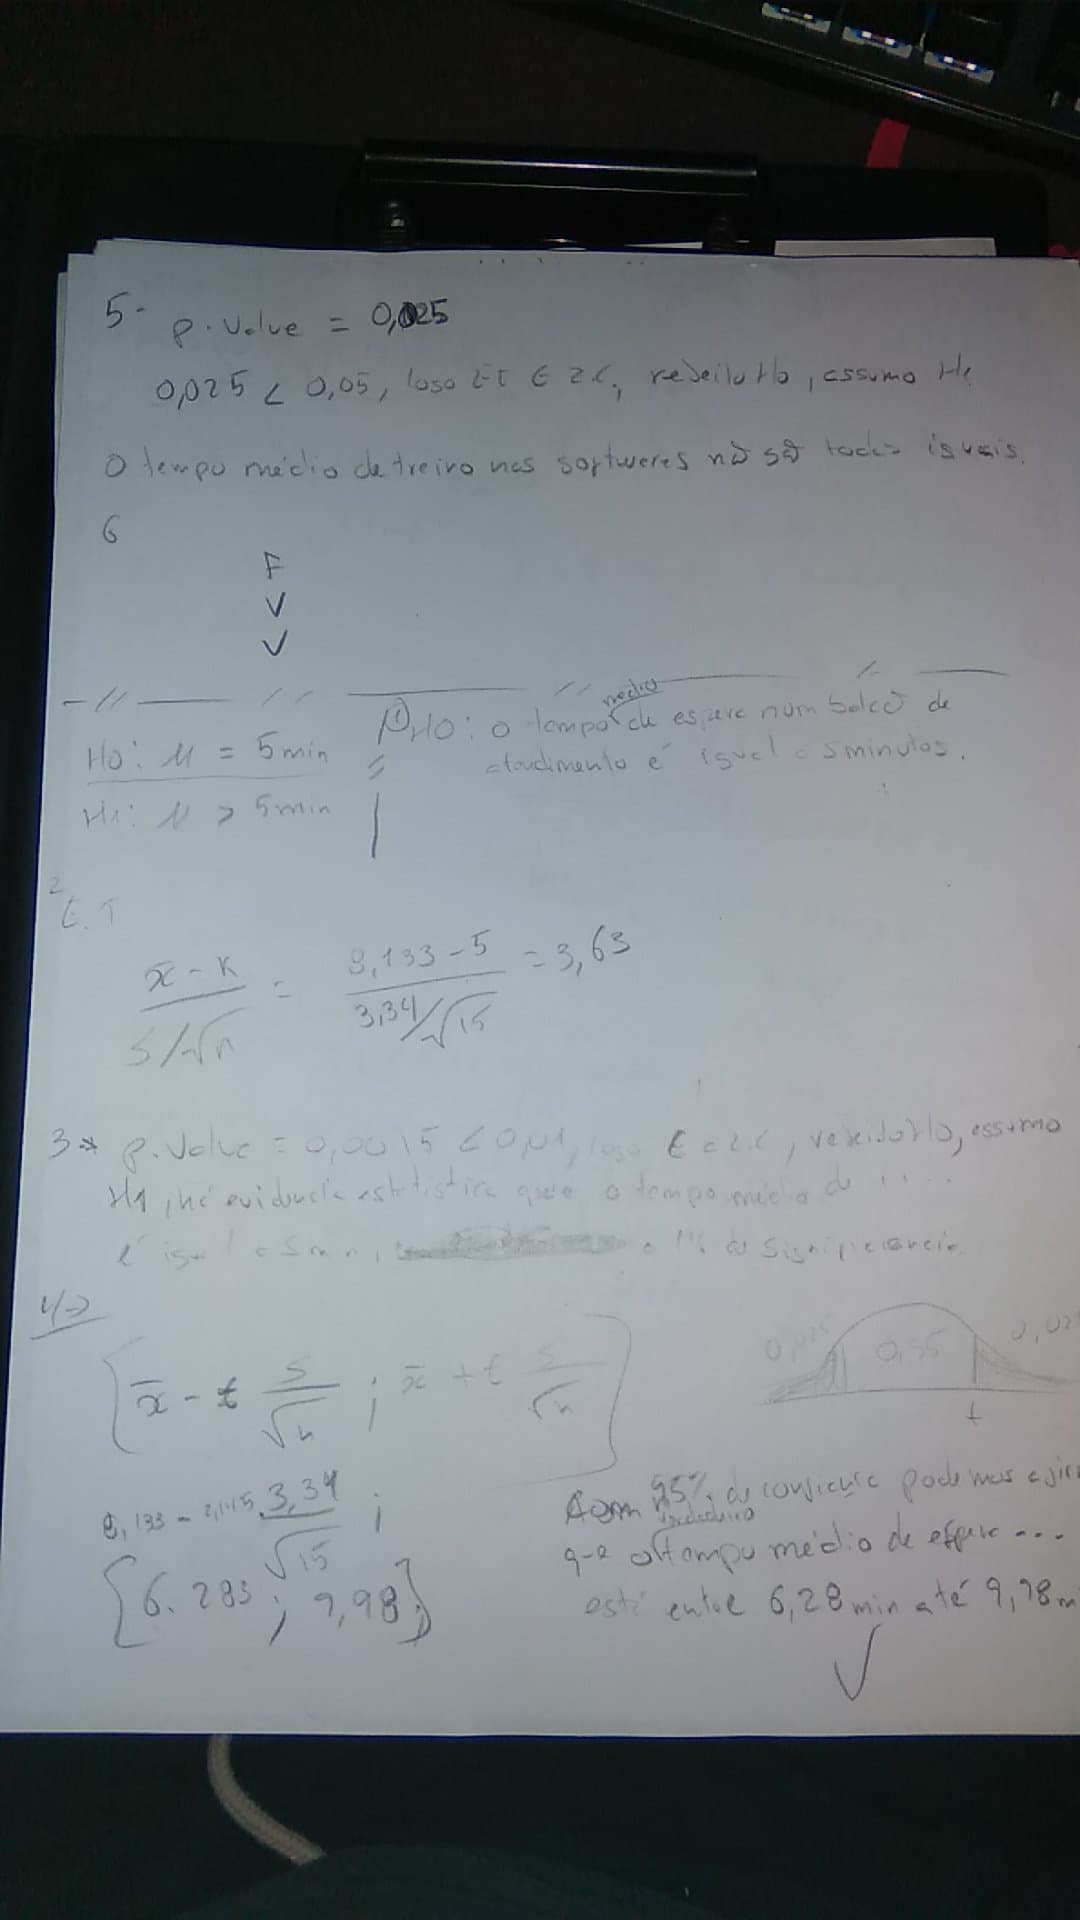 5- p.value = 0,025
0,025 < 0,05, logo E.T ∈ Z.C, rejeito H0, assumo H1
O tempo médio de treino nos softweres não são todos iguais.
6
F
V
V
H0: μ = 5 min
H1: μ > 5 min
① H0: o tempo médio de espera num balcão de
atendimento é igual a 5 minutos.
2
E.T
x̄ - K / S/√n = 8,133 - 5 / 3,34/√15 = 3,63
3→ p.value = 0,0015 < 0,01, logo E ∈ Z.C, rejeito H0, assumo
H1, há evidência estatística que o tempo médio de ....
é igual a 5 min, a 1% de significância
4→
[x̄ - t S/√n ; x̄ + t S/√n]
0,95
t
8,133 - 2,145 . 3,34/√15 ;
[6.283 ; 9,98]
Com 95% de confiança podemos
que o tempo médio de espera ...
está entre 6,28 min até 9,98 m